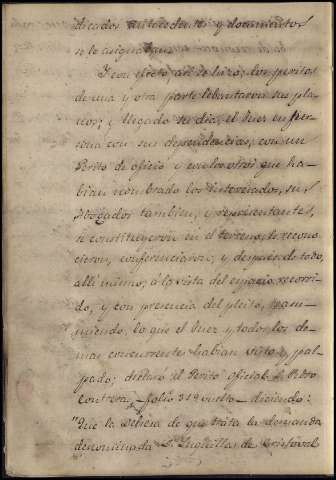 dicados antecedentes y documentos
se le asignaban
Y en efecto, así se hizo; los peritos
de una y otra parte lebantaron sus pla-
nos; y llegado su dia, el Juez en per-
sona con sus dependencias, con un
Perito de oficio y con los otros que ha-
bian nombrado los interesados, sus
Abogados tambien, y representantes,
se constituyeron en el terreno, lo recono-
cieron, conferenciaron; y despues de todo,
alli mismo, á la vista del espacio recorri-
do, y con presencia del pleito,
lo que el Juez y todos los de-
mas concurrentes habian visto y pal-
pado; declaró el Perito Oficial D. Pedro
Contreras, folio 319 vuelto diciendo:
"Que la dehesa de que trata la demanda
denominada de Cristoval